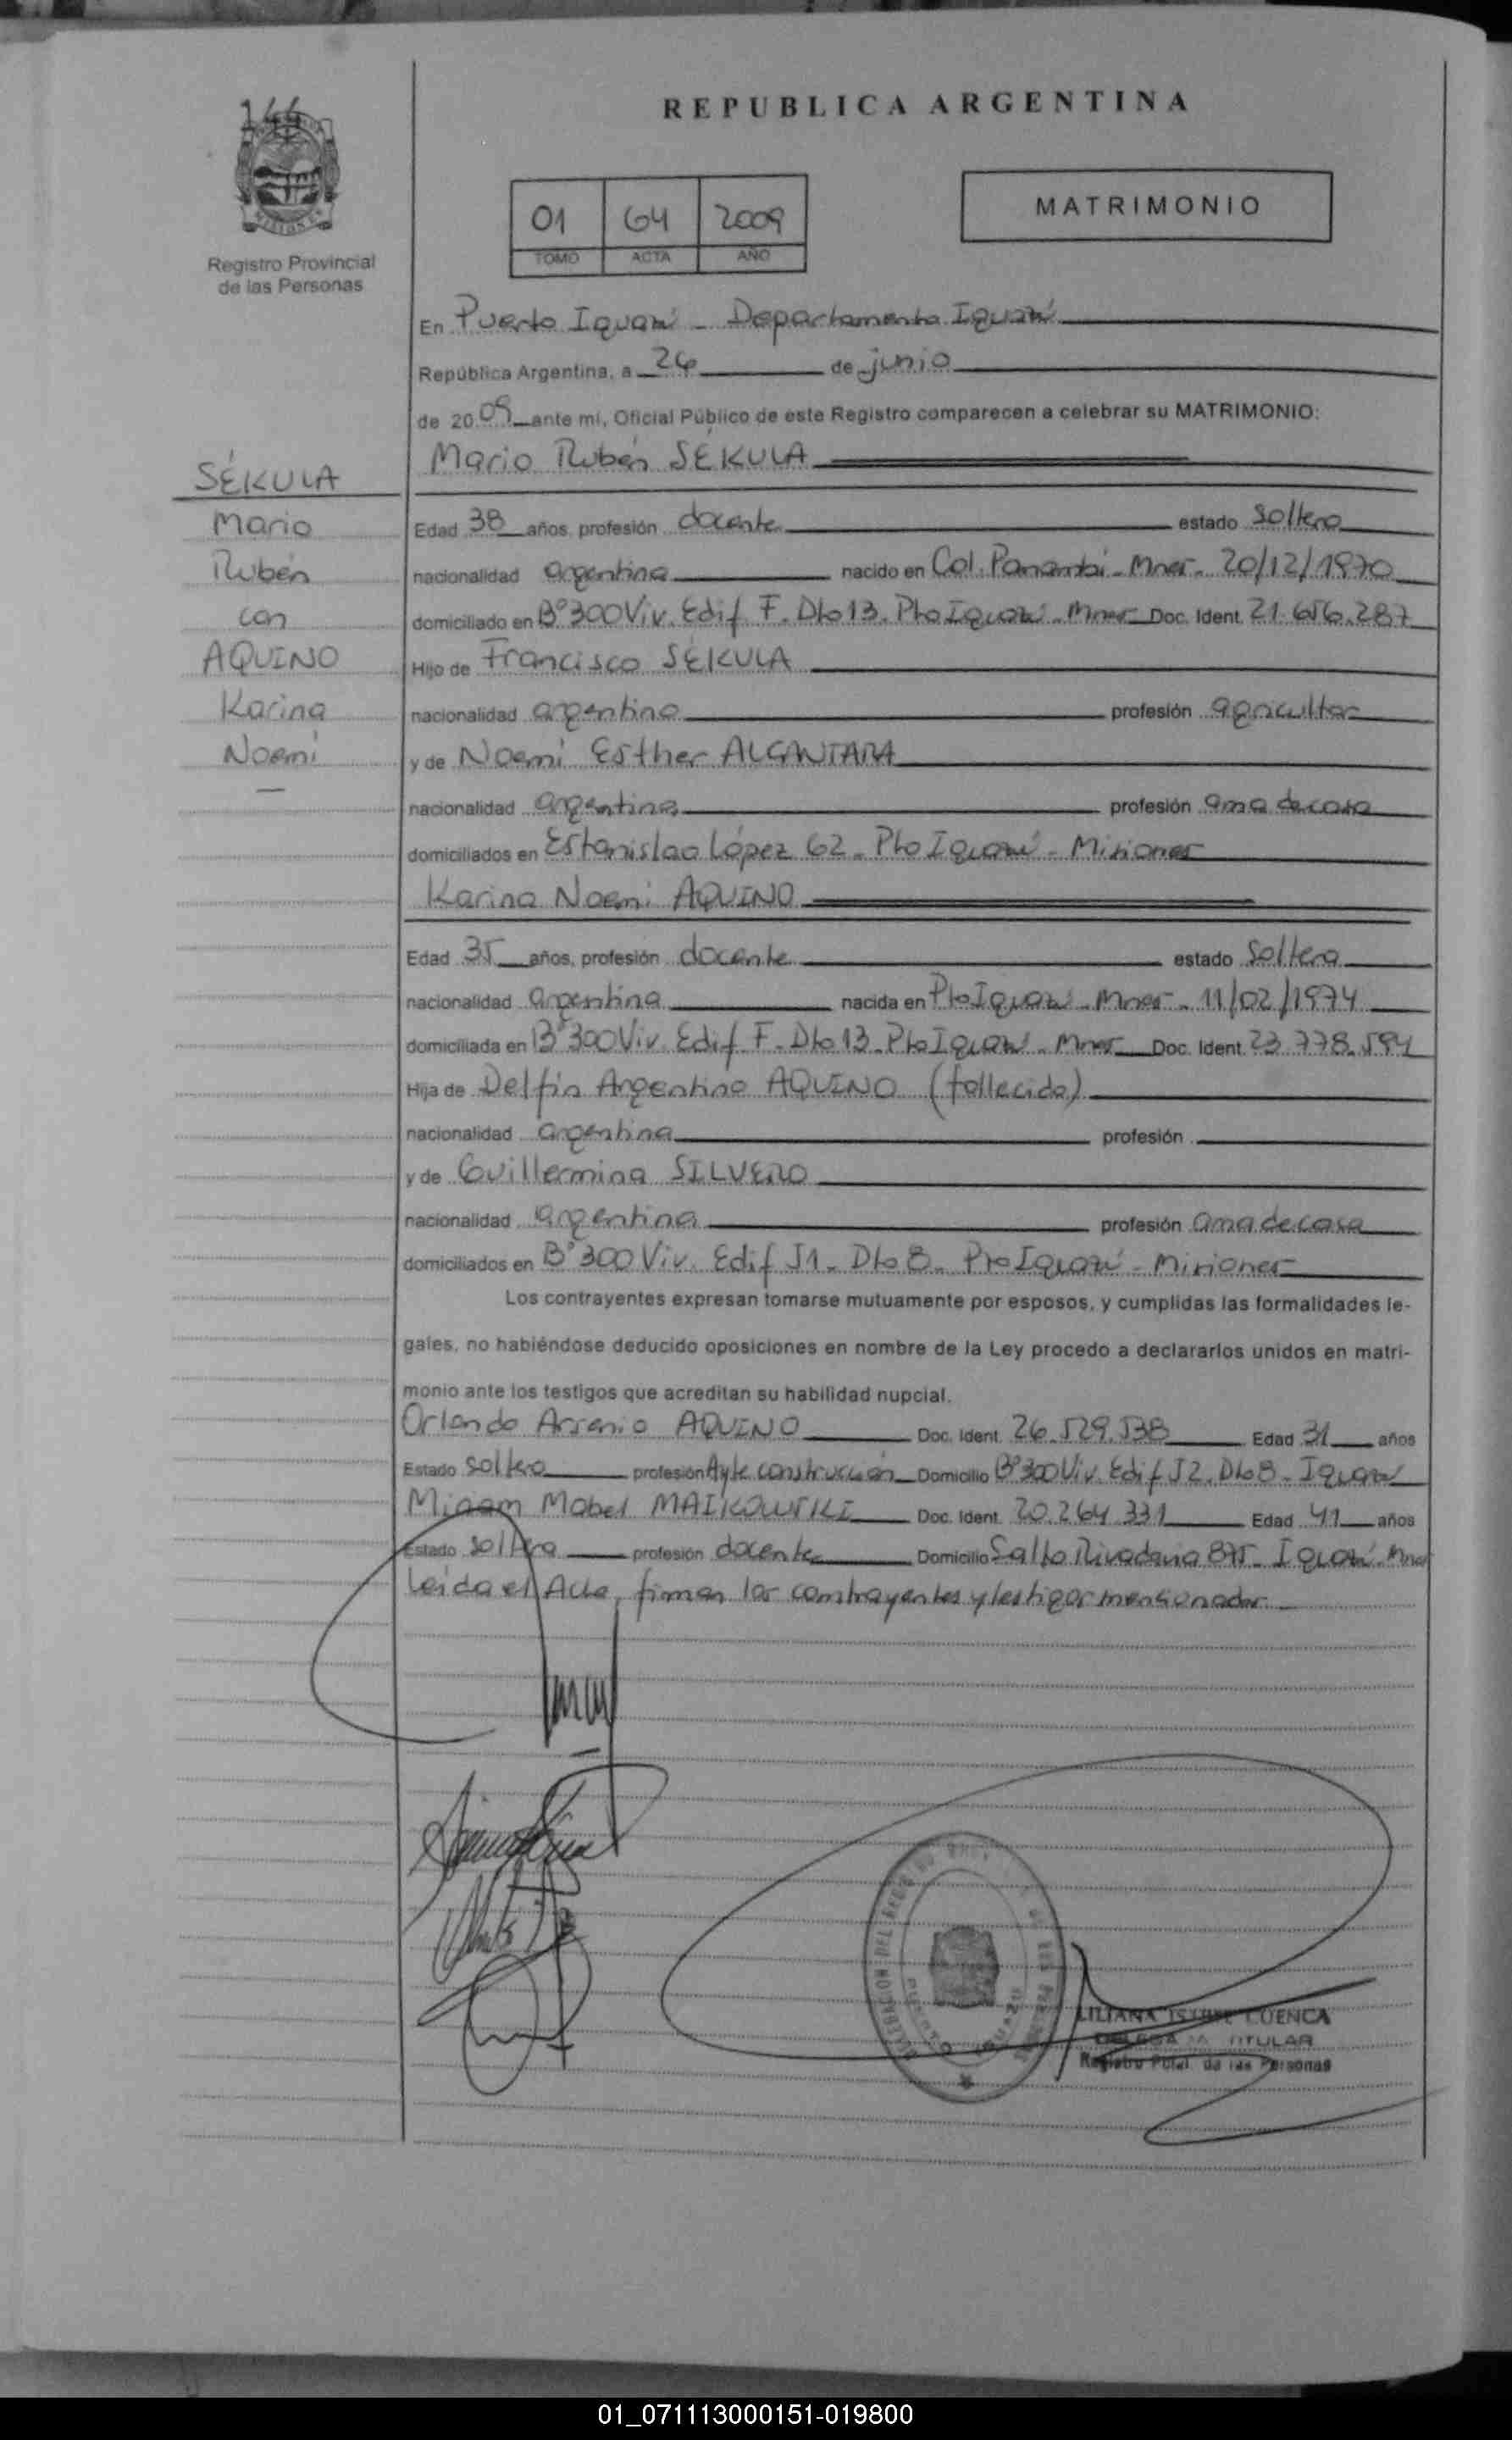 144
REPUBLICA ARGENTINA
01 64 2009
TOMO ACTA AÑO
MATRIMONIO
Registro Provincial
de las Personas
En Puerto Iguazú - Departamento Iguazú
República Argentina, a 26 de junio
de 2009 ante mí, Oficial Público de este Registro comparecen a celebrar su MATRIMONIO:
Mario Rubén SÉKULA
SÉKULA
Mario
Rubén
con
AQUINO
Karina
Noemí
Edad 38 años, profesión docente estado soltero
nacionalidad argentina nacido en Col. Panambí - Mnes - 20/12/1970
domiciliado en B° 300 Viv. Edif F. Dto 13. Pto Iguazú - Mnes Doc. Ident. 21.656.287
Hijo de Francisco SÉKULA
nacionalidad argentina profesión agricultor
y de Noemí Esther ALCANTARA
nacionalidad argentina profesión ama de casa
domiciliados en Estanislao López 62 - Pto Iguazú - Misiones
Karina Noemí AQUINO
Edad 35 años, profesión docente estado soltera
nacionalidad argentina nacida en Pto Iguazú - Mnes - 11/02/1974
domiciliada en B° 300 Viv. Edif F. Dto 13. Pto Iguazú - Mnes Doc. Ident. 23.778.594
Hija de Delfín Argentino AQUINO (fallecido)
nacionalidad argentina profesión
y de Guillermina SILVERO
nacionalidad argentina profesión ama de casa
domiciliados en B° 300 Viv. Edif J1 - Dto 8 - Pto Iguazú - Misiones
Los contrayentes expresan tomarse mutuamente por esposos, y cumplidas las formalidades le-
gales, no habiéndose deducido oposiciones en nombre de la Ley procedo a declararlos unidos en matri-
monio ante los testigos que acreditan su habilidad nupcial.
Orlando Arsenio AQUINO Doc. Ident. 26.529.538 Edad 31 años
Estado soltero profesión Ayte construcción Domicilio B° 300 Viv. Edif J2. Dto 8 - Iguazú
Miriam Mabel MAIKOWSKI Doc. Ident. 20.264.331 Edad 41 años
Estado soltera profesión docente Domicilio Salto Rivadavia 875 - Iguazú - Mnes
Leída el Acta, firman los contrayentes y testigos mencionados
LILIANA ISABEL CUENCA
DELEGADA TITULAR
Registro Pcial. de las Personas
01_071113000151-019800